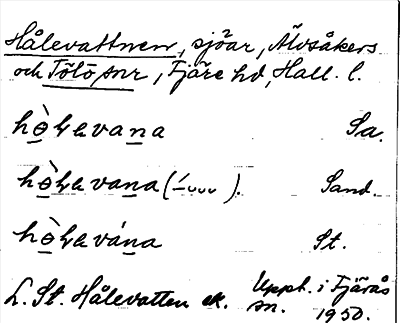 Hålevattnen, sjöar, Älvsåkers
och Tölö snr, Fjäre hd, Hall. l.
hò̲lavana Sa.
hò̲lavana (–́ ᴗᴗᴗ). Sand.
hò̲lavána St.
L. St. Hålevatten ek. Upph. i Fjärås
sn. 1950.